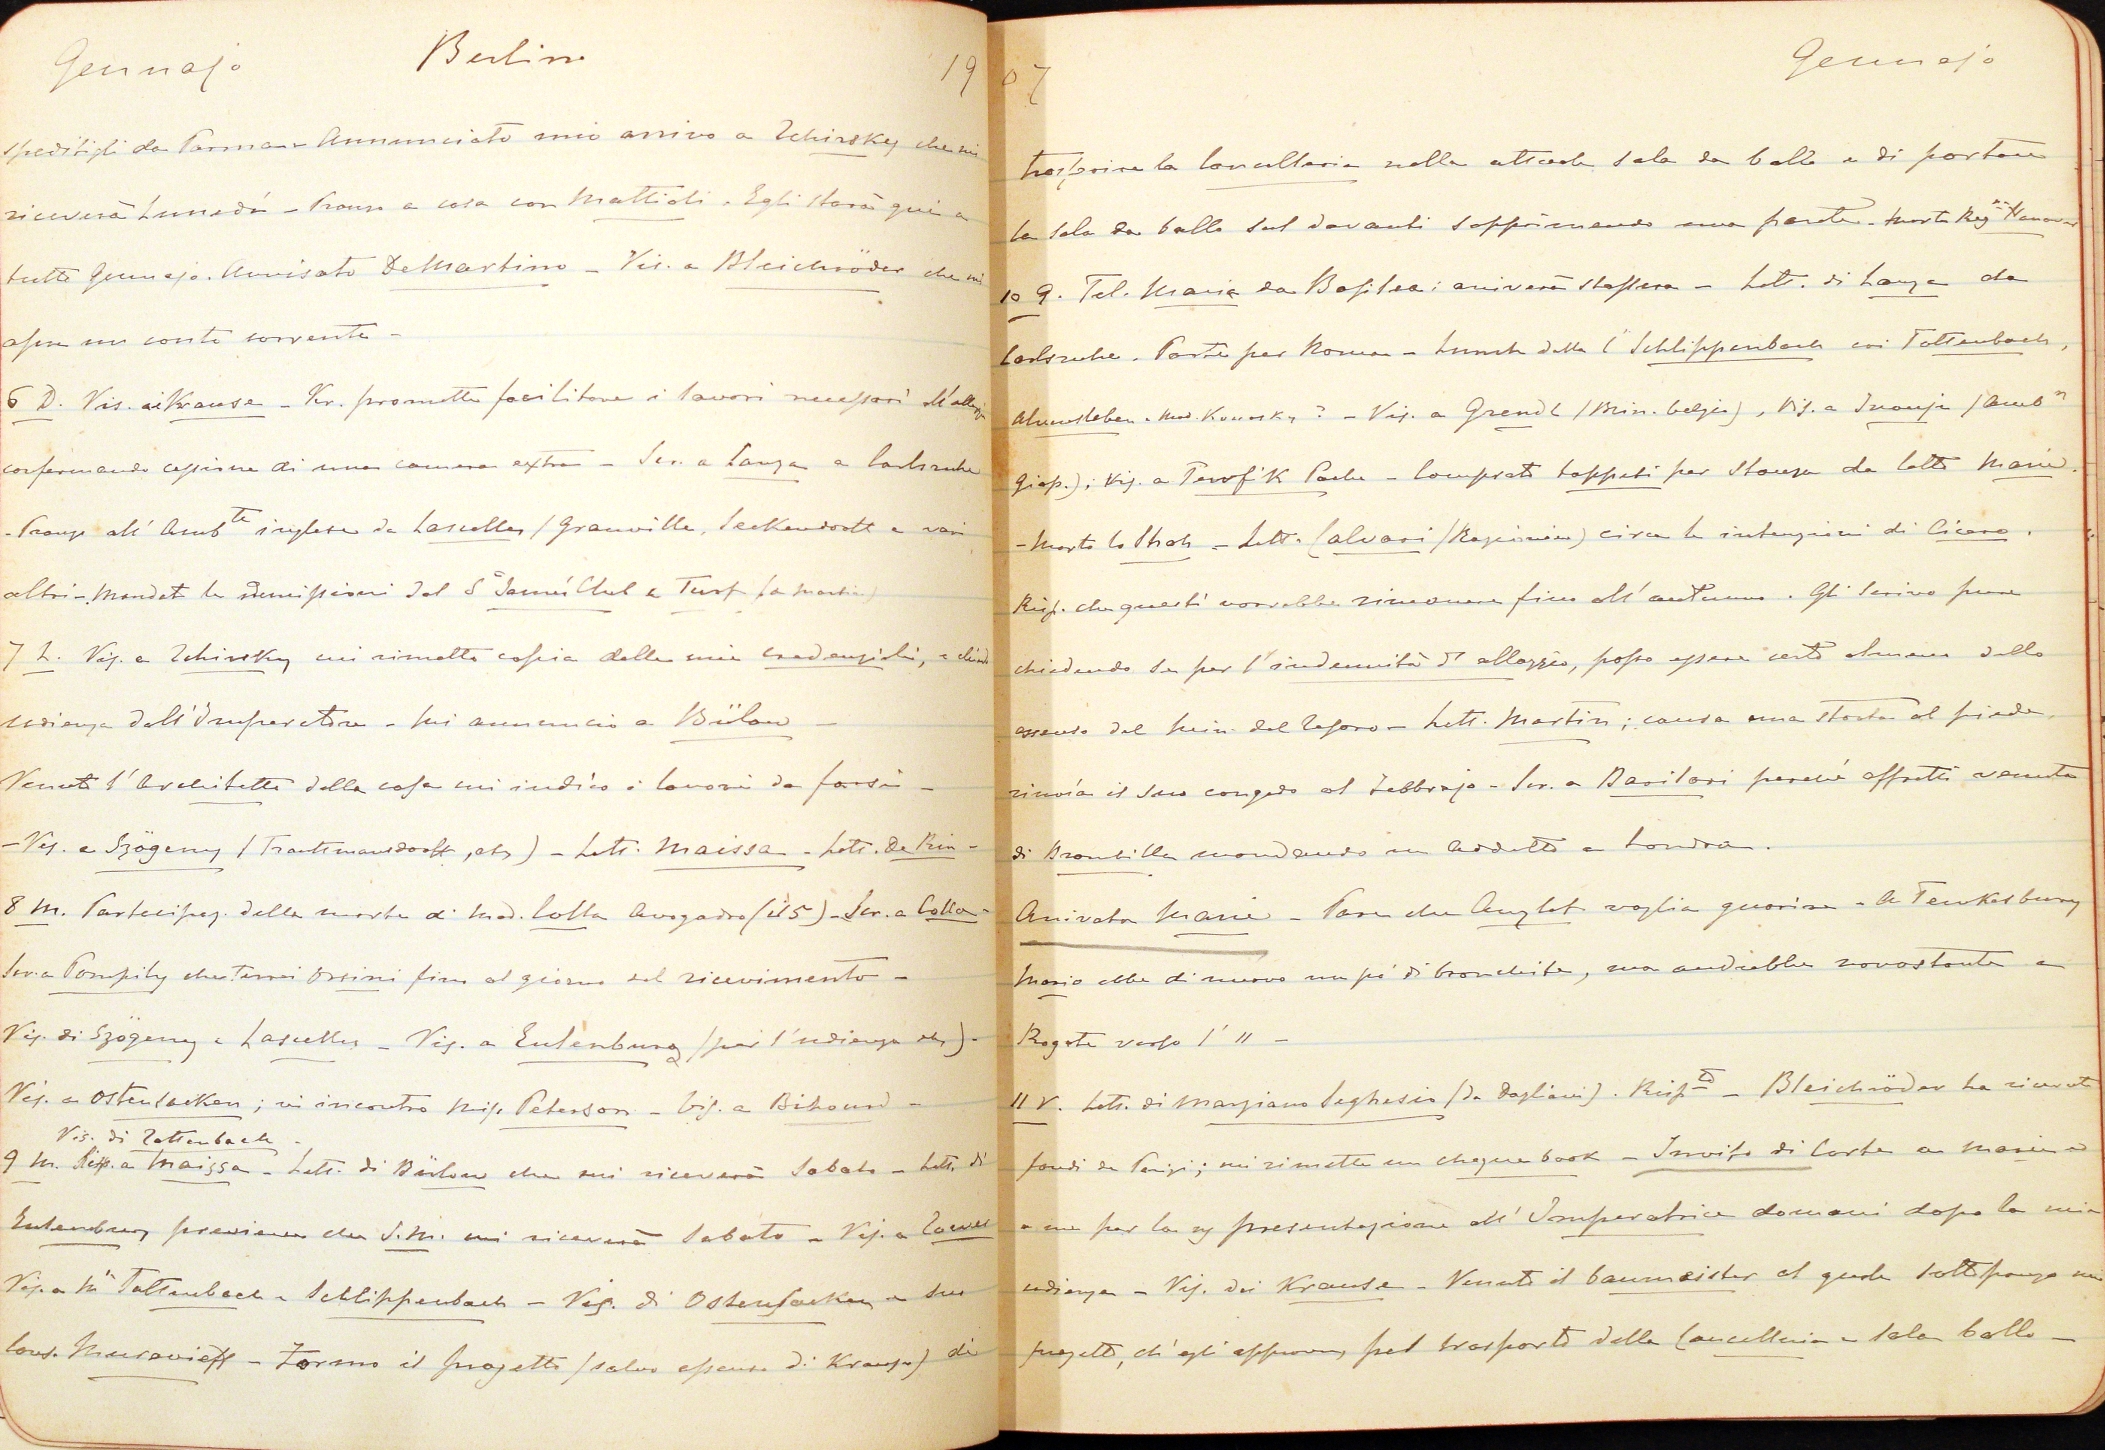 Gennajo Berlino 19
speditigli da Parma - Annunciato mio arrivo a Tchirsky che mi
riceverà Lunedí - Pranzo a casa con Mattioli. Egli starà qui a
tutto Gennajo. Avvisato DeMartino - Vis. a Bleichröder che mi
apre un conto corrente -
6 D. Vis. ai Krause - Kr. promette facilitare i lavori necessari all'
confermando cessione di una camera extra - Scr. a Lanza a Carlsruhe
- Pranzo all' Amb.ta inglese da Lascelles (Granville, Seckendorff e vari
altri - Mandate le dimissioni dal St James' Club e Turf (a Martin)
7 L. Vis. a Tchirsky cui rimetto copia delle mie credenziali, e chiedo
udienza dall'Imperatore - Mi annuncio a Bülow -
Venuto l'Architetto della casa cui indico i lavori da farsi -
- Vis. a Szögeny (Trautmansdorff, etc) - Lett. Maissa - Lett. De Rin -
8 M. Partecipaz. della morte di Mad. Colla Avogadro (il 5) - Scr. a Colla -
Scr. a Pompily che terrei Orsini fino al giorno del ricevimento -
Vis. di Szögeny e Lascelles - Vis. a Eulenburg (per l'udienza etc) -
Vis. a Ostensacken; vi incontro Miss Peterson - Vis. a Bihourd -
Vis. di Tattenbach -
9 M. Risp. a Maissa - Lett. di Bülow che mi riceverà Sabato - Lett. di
Eulenburg previene che S.M. mi riceverà Sabato - Vis. a Tower
Vis. a Tattenbach e Schlippenbach - Vis. di Ostensacken e suo
Cons. Muravieff - Formo il progetto (salvo assenso di Krause) di
07 Gennajo
trasferire la Cancelleria nella attuale sala da ballo e di portare
la sala da ballo sul davanti sopprimendo una parete. Morta Reg.na Hanover
10 G. Tel. Marie da Basilea: arriverà stassera - Lett. di Lanza da
Carlsruhe. Parte per Roma - Lunch dalla Schlippenbach coi Tattenbach,
Alvensleben. Mad. ? - Vis. a Greindl (Min. belga), Vis. a Inouye (Amb.
giap.); Vis. a Tewfik Pacha - Comprato tappeti per stanza da letto Marie.
- Morto lo Shah - Lett. Calvari (Ragioniere) circa le intenzioni di Cicero.
Risp. che questi vorrebbe rimanere fino all'autunno. Gli scrivo pure
chiedendo se per l'indennità d'alloggio, posso essere certo almeno dello
assenso del Min. del Tesoro - Lett. Martin; causa una storta al piede,
rinvía il suo congedo al Febbrajo - Scr. a Barilari perchè affretti venuta
di Brambilla mandando un addetto a Londra.
Arrivata Marie - Pare che Anzlet voglia guarire - A Tewkesbury
Mario ebbe di nuovo un pó di bronchite, ma andrebbe nonostante a
Rogate verso l'11 -
11 V. Lett. di Marziano Seghesio (da Dogliani). Risp.to - Bleichröder ha ricevuto
fondi da Parigi; mi rimette un cheque book - Invito di Corte a Marie e
a me per la presentazione all'Imperatrice domani dopo la mia
udienza - Vis. dei Krause - Venuto il baumeister al quale sottopongo mio
progetto, ch'egli approva, pel trasporto della Cancelleria e sala ballo -